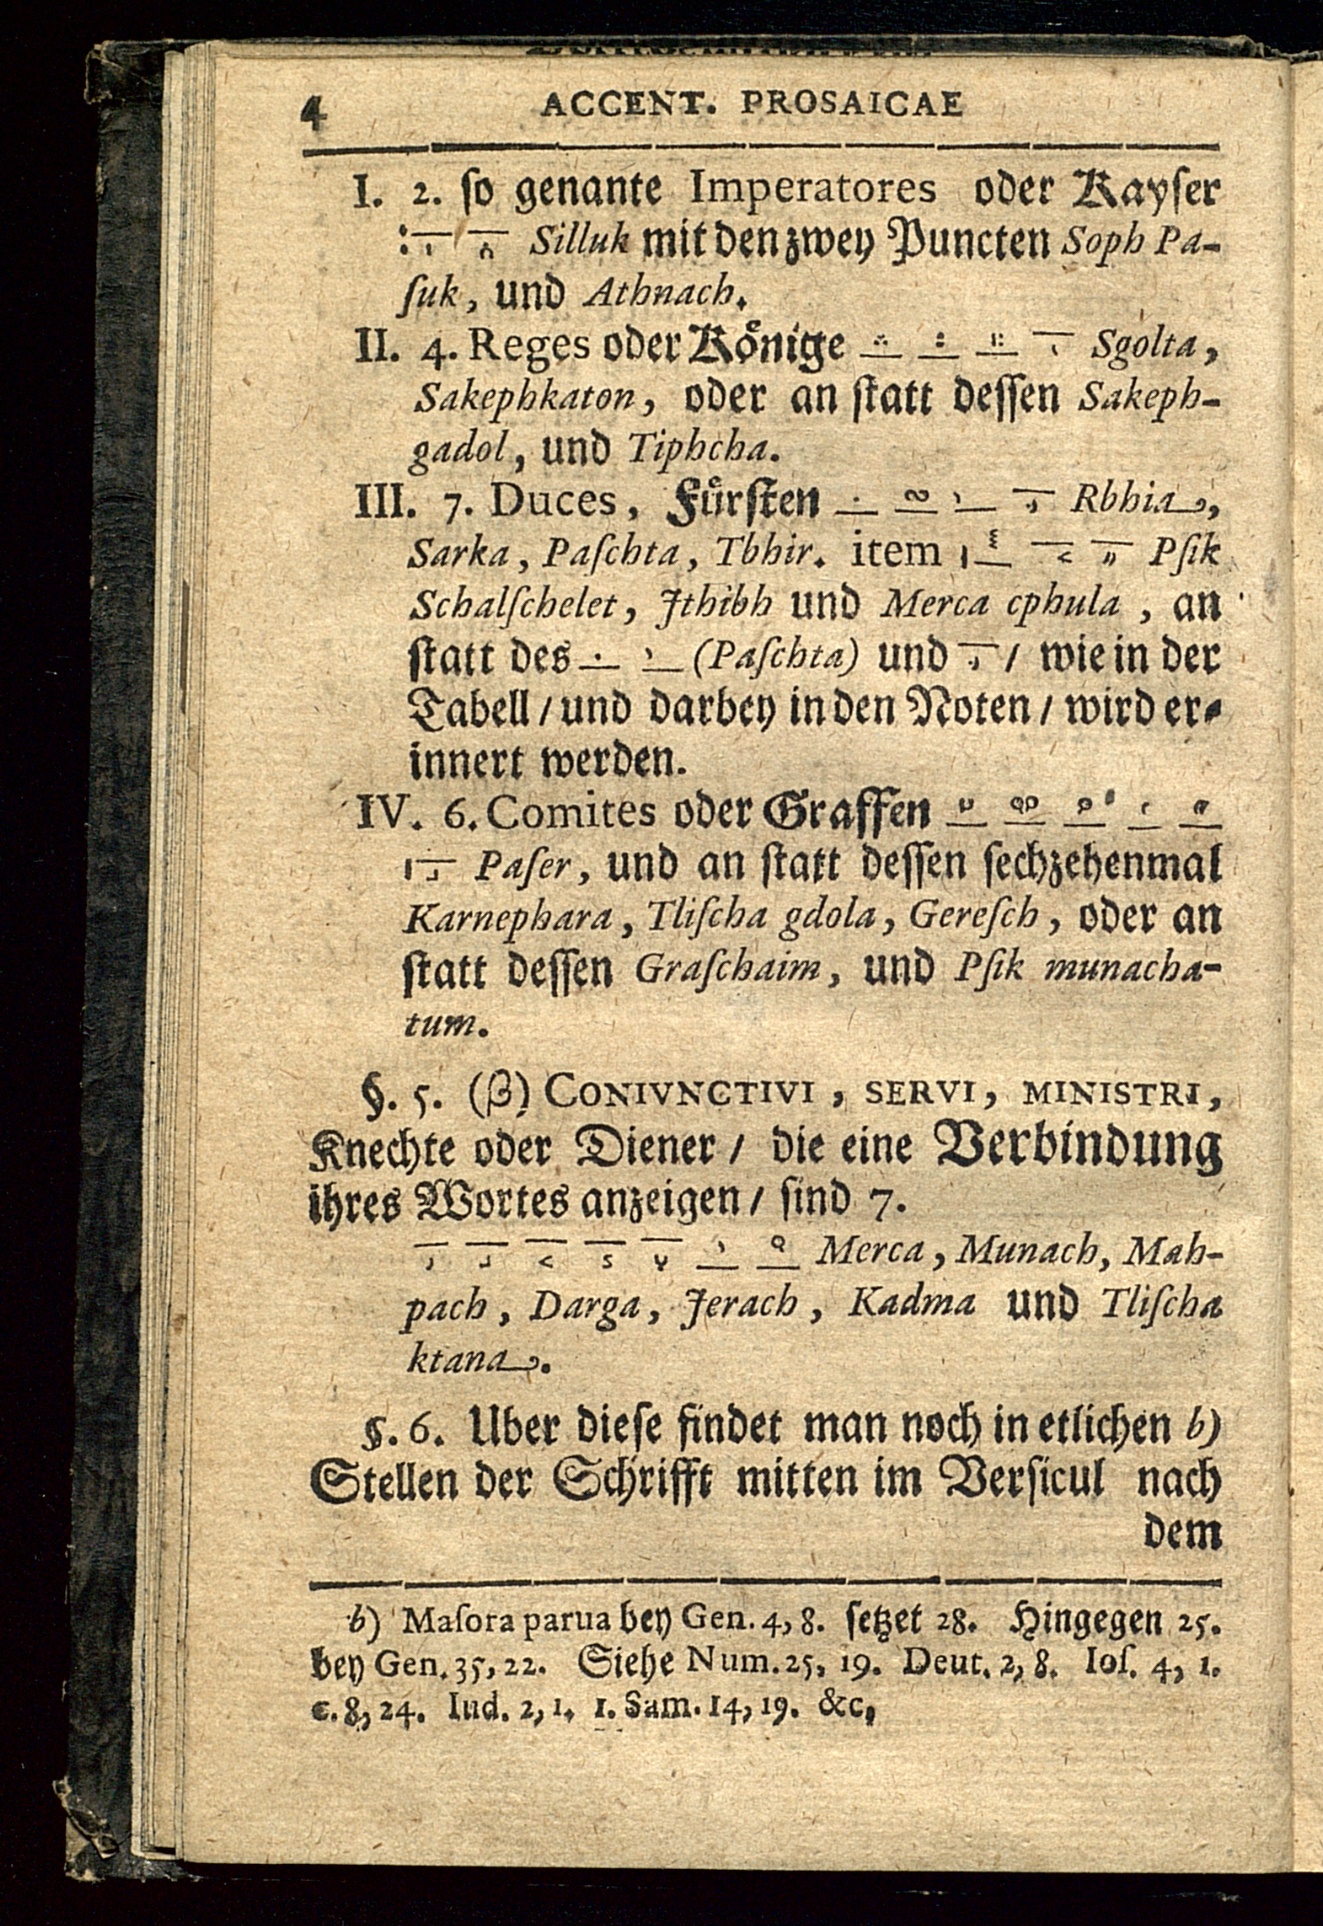 4 ACCENT. PROSAICAE
I. 2. ſo genante Imperatores oder Kayſer
Silluk mit den zwey Puncten Soph Pa-
ſuk, und Athnach.
II. 4. Reges oder Koͤnige Sgolta,
Sakephkaton, oder an ſtatt deſſen Sakeph-
gadol, und Tiphcha.
III. 7. Duces, Fuͤrſten Rbhia,
Sarka, Paſchta, Tbhir. item Pſik
Schalſchelet, Jthibh und Merca cphula, an
ſtatt des (Paſchta) und / wie in der
Tabell / und darbey in den Noten / wird er-
innert werden.
IV. 6. Comites oder Graffen
Paſer, und an ſtatt deſſen ſechzehenmal
Karnephara, Tliſcha gdola, Gereſch, oder an
ſtatt deſſen Graſchaim, und Pſik munacha-
tum.
§. 5. (β) CONIVNCTIVI, SERVI, MINISTRI,
Knechte oder Diener / die eine Verbindung
ihres Wortes anzeigen / ſind 7.
Merca, Munach, Mah-
pach, Darga, Jerach, Kadma und Tliſcha
ktana.
§. 6. Uber dieſe findet man noch in etlichen b)
Stellen der Schrifft mitten im Verſicul nach
dem
b) Maſora parua bey Gen. 4, 8. ſetzet 28. Hingegen 25.
bey Gen. 35, 22. Siehe Num. 25, 19. Deut. 2, 8. Ioſ. 4, 1.
c. 8, 24. Iud. 2, 1. 1. Sam. 14, 19. &c,